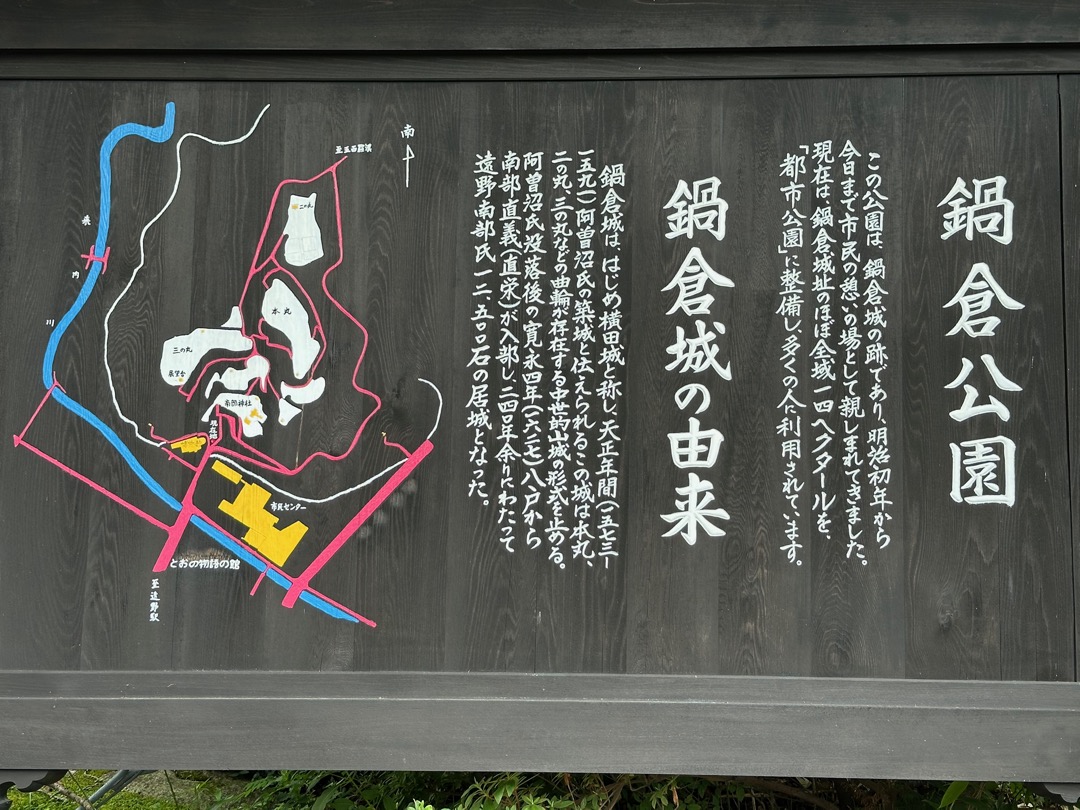 鍋倉公園
この公園は、鍋倉城の跡であり、明治初年から
今日まで市民の憩いの場として親しまれてきました。
現在は、鍋倉城址のほぼ全域一四ヘクタールを、
「都市公園」に整備し、多くの人に利用されています。
鍋倉城の由来
鍋倉城は、はじめ横田城と称し、天正年間(一五七三―
一五九一)阿曽沼氏の築城と伝えられるこの城は本丸、
二の丸、三の丸などの曲輪が存在する中世的山城の形式を止める。
阿曽沼氏没落後の寛永四年(一六二七)八戸から
南部直義(直栄)が入部し、二四〇年余りにわたって
遠野南部氏一二、五〇〇石の居城となった。
南
二の丸
本丸
三の丸
展望台
南部神社
現在地
来
内
川
市民センター
とおの物語の館
至遠野駅